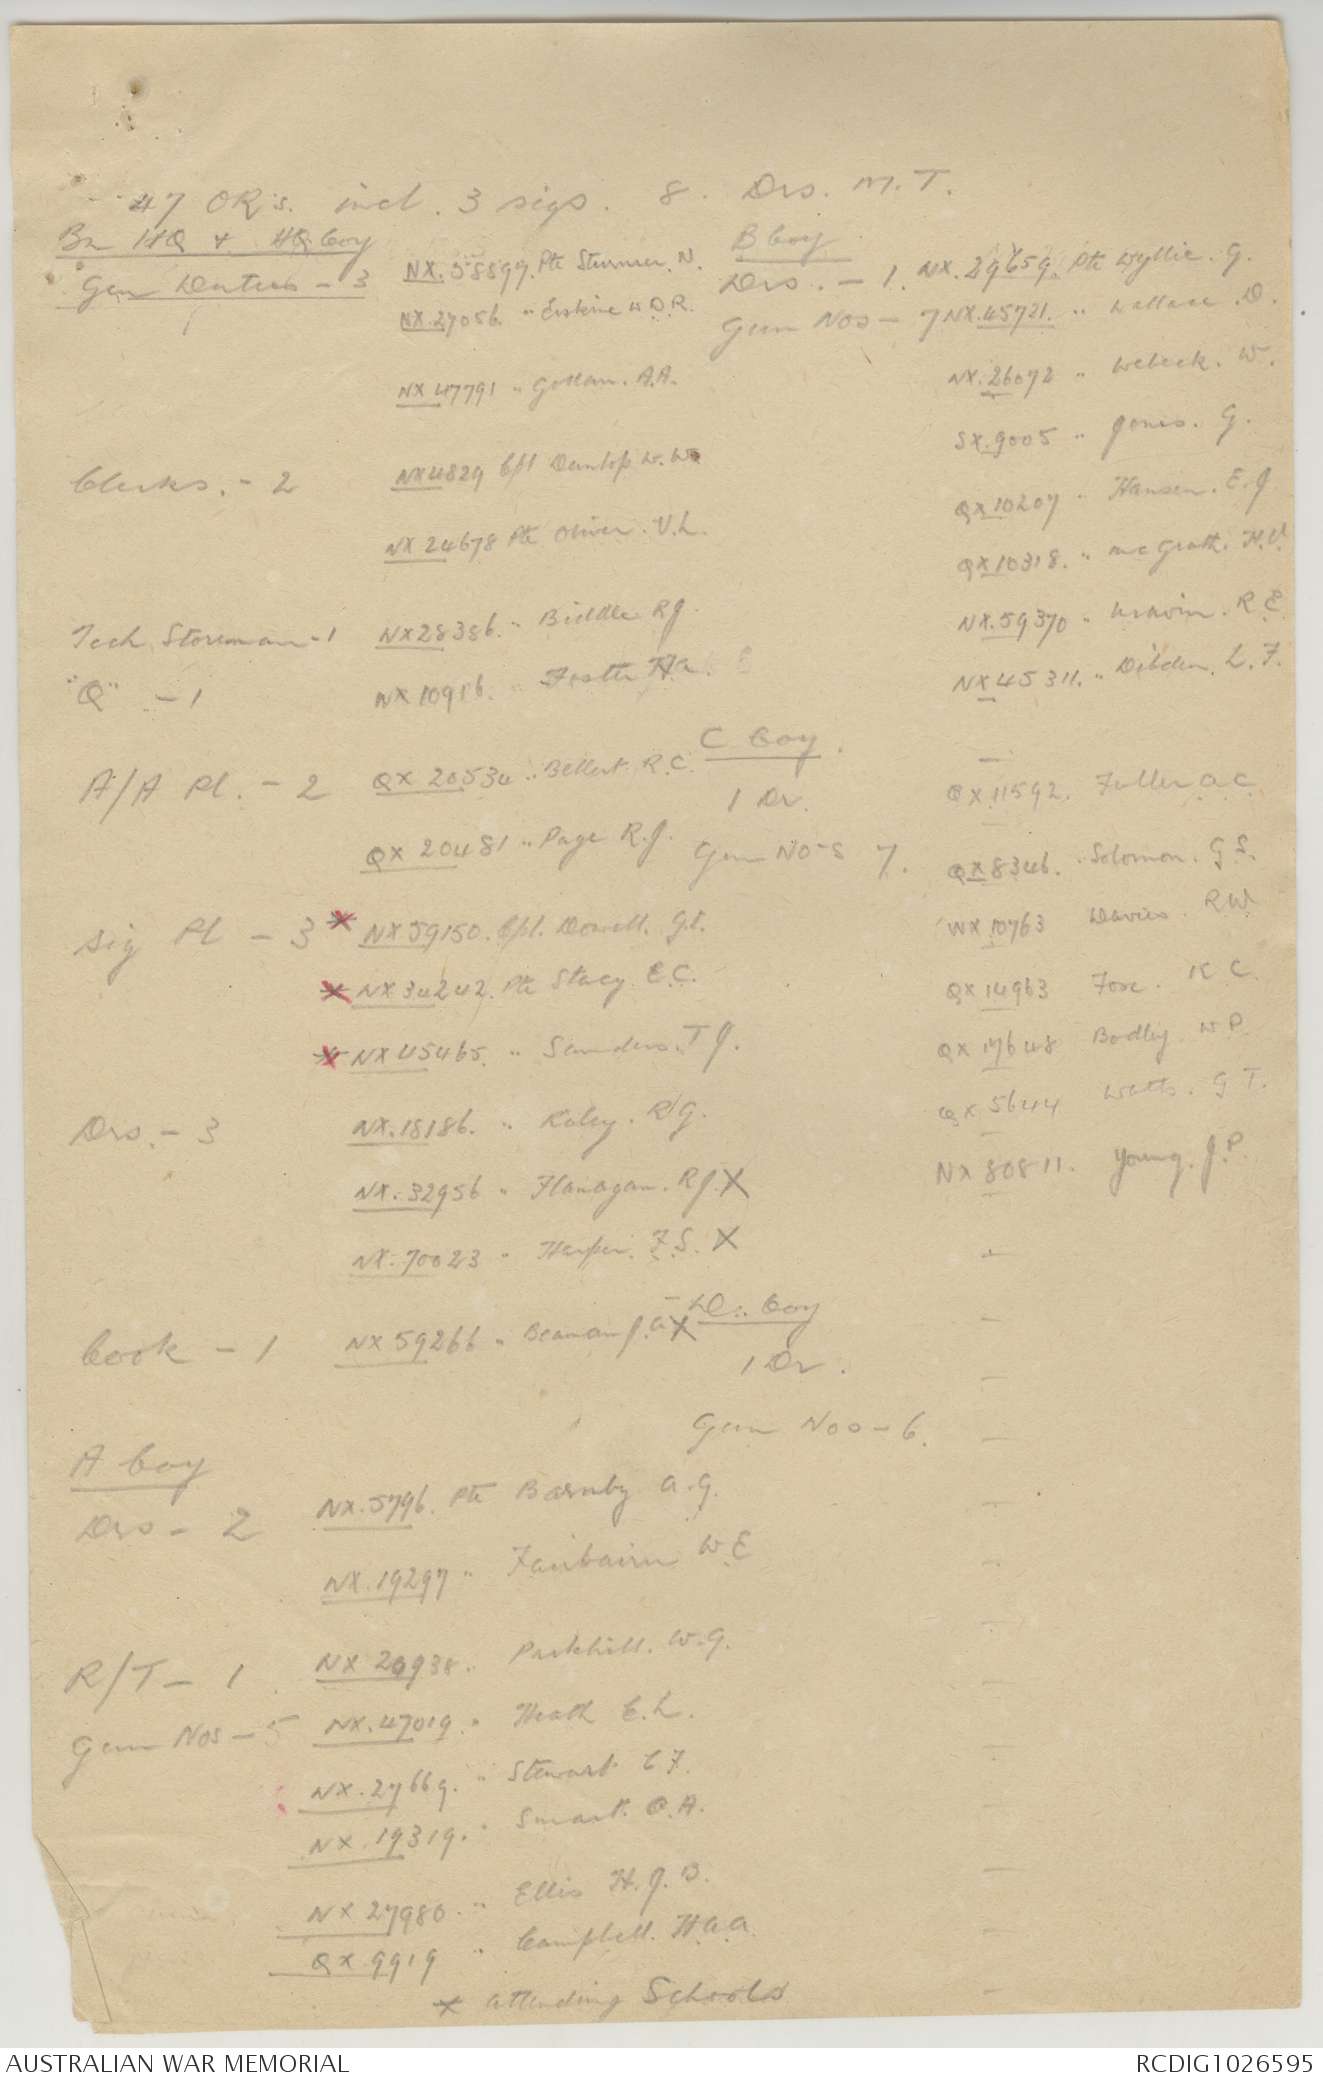 47 ORs. incl. 3 sigs. 8. Drs. M.T.
Bn HQ & HQ Coy
Gen Duties - 3 NX.58897. Pte Sturmer. N.
NX.27056. " Erskine W.D.R.
NX 47791 " A.A.
Clerks. - 2 NX4829 Cpl Dunlop W.W.
NX 24678 Pte Oliver. V.L.
Tech Storeman - 1 NX28386. " Biddle R.J.
"Q" - 1 NX 10916. " Foster
A/A Pl. - 2 QX 20534 " Bellert. R.C.
QX 20481 " Page R.J.
Sig Pl - 3 * NX59150. Cpl. Dowell. G.E.
* NX34242. Pte Stacy. E.C.
* NX45465. " Saunders. T J.
Drs. - 3 NX.18186. " Raley. R.G.
NX.32956 " Flanagan. R J. X
NX.70023 " Harper. F.S. X
Cook - 1 NX 59266 " Beaman J.A X
A Coy
Drs - 2 NX.5796. Pte Barnby A.G.
NX.19297 " Fairbairn W E
R/T - 1 NX 20938. " Parkhill. W.G.
Gen Nos - 5 NX.47019. " Heath C.L.
NX.27669. " Stewart C F.
NX.19319. " Smart. O.A.
NX 27980. " Ellis H.J.B.
QX 9919 " Campbell. H.A.A.
* attending Schools
B Coy
Drs. - 1. NX.29659. Pte Wyllie. G.
Gen Nos - 7 NX.45721. " Wallace. D.
NX.26072 " Webeck. W.
SX.9005 " Jones. G.
QX10207 " Hansen. E.J
QX10318. " McGrath. H.V
NX.59370 " R.E
NX45311. " Dibden. L.F.
C Coy.
1 Dr. QX 11592. Fuller A.C.
Gen No-s 7. QX8346. Solomon. G S.
WX 10763 Davies. R.W.
QX 14963 Foxe. K C.
QX 17648 Bodley. W P.
QX 5644 Watts. G T.
NX 80811. Young. J.P.
D. Coy
1 Dr.
Gen Nos - 6.
AUSTRALIAN WAR MEMORIAL
RCDIG1026595